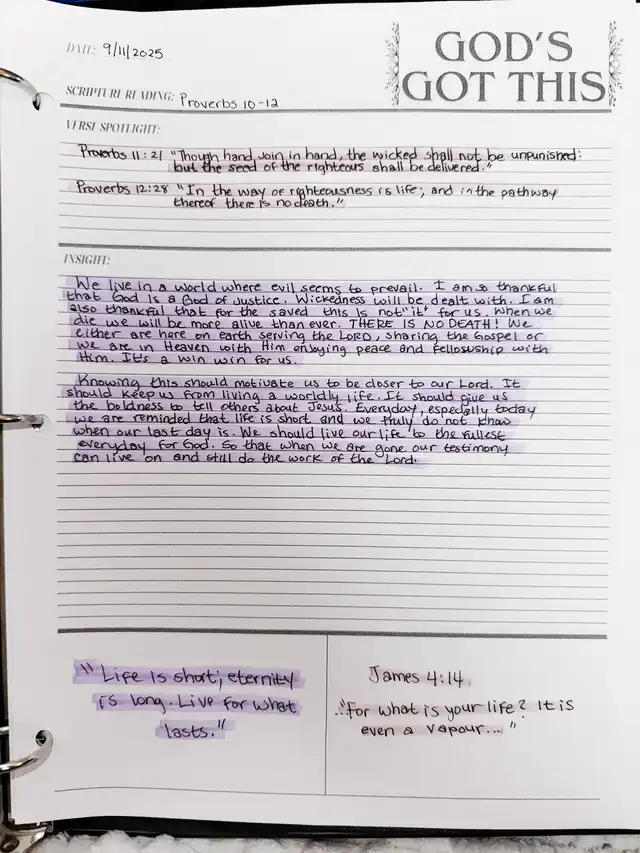 DATE: 9/11/2025
GOD'S
GOT THIS
SCRIPTURE READING: Proverbs 10-12
VERSE SPOTLIGHT:
Proverbs 11:21 "Though hand join in hand, the wicked shall not be unpunished:
but the seed of the righteous shall be delivered."
Proverbs 12:28 "In the way of righteousness is life; and in the pathway
thereof there is no death."
INSIGHT:
We live in a world where evil seems to prevail. I am so thankful
that God is a God of justice. Wickedness will be dealt with. I am
also thankful that for the saved this is not "it" for us. When we
die we will be more alive than ever. THERE IS NO DEATH! We
either are here on earth serving the LORD, sharing the Gospel or
we are in Heaven with Him enjoying peace and fellowship with
Him. It's a win win for us.
Knowing this should motivate us to be closer to our Lord. It
should keep us from living a worldly life. It should give us
the boldness to tell others about Jesus. Everyday, especially today
we are reminded that life is short and we truly do not know
when our last day is. We should live our life to the fullest
everyday for God. So that when we are gone our testimony
can live on and still do the work of the Lord.
"Life is short; eternity
is long. Live for what
lasts."
James 4:14
..."For what is your life? It is
even a vapour..."